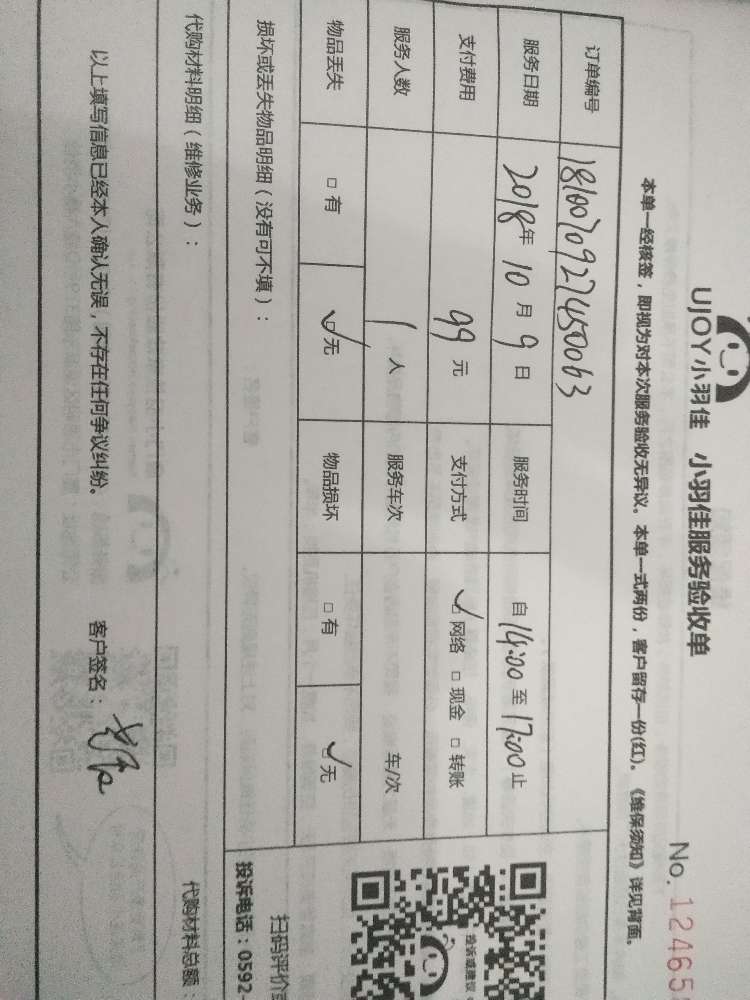 UJOY小羽佳 小羽佳服务验收单
No. 12465
本单一经核签，即视为对本次服务验收无异议。本单一式两份，客户留存一份(红)。《维保须知》详见背面。
订单编号 1810070927450063
服务日期 2018年 10月 9日 服务时间 自 14:00 至 17:00 止
支付费用 99 元 支付方式 ☑ 网络 □ 现金 □ 转账
服务人数 1 人 服务车次 车/次
物品丢失 □ 有 ☑ 无 物品损坏 □ 有 ☑ 无
损坏或丢失物品明细（没有可不填）：
投诉或建议
扫码评价
投诉电话：0592-
代购材料明细（维修业务）：
代购材料总额：
以上填写信息已经本人确认无误，不存在任何争议纠纷。 客户签名：